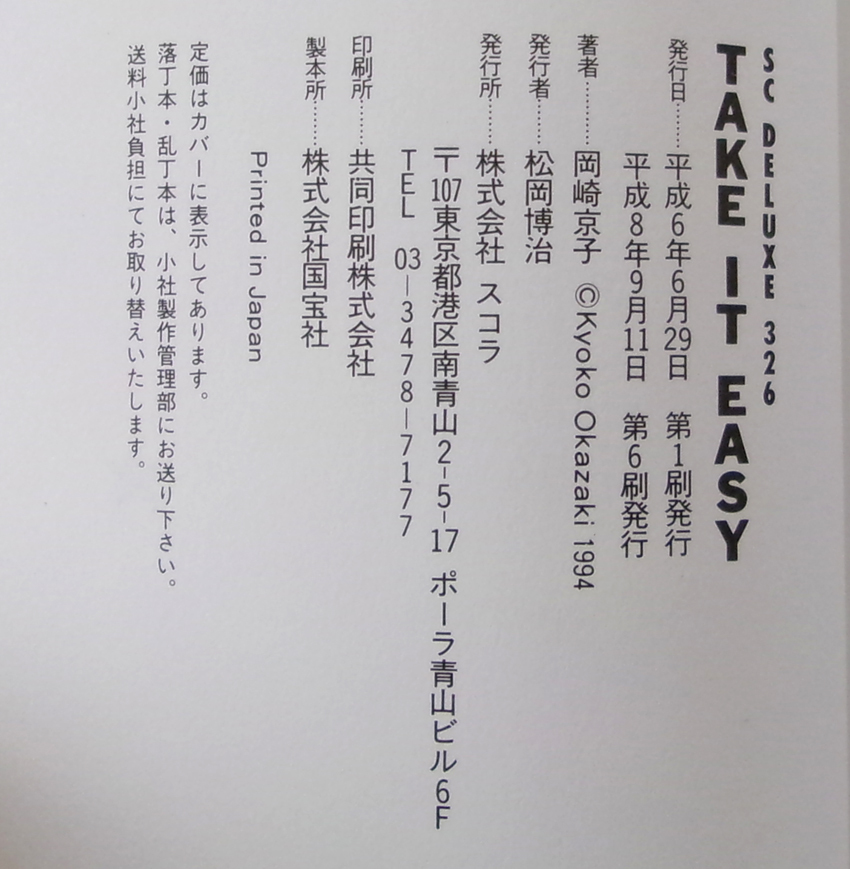 SC DELUXE 326
TAKE IT EASY
発行日………平成6年6月29日　第1刷発行
平成8年9月11日　第6刷発行
著者…………岡崎京子 ©Kyoko Okazaki 1994
発行者………松岡博治
発行所………株式会社 スコラ
〒107東京都港区南青山2-5-17 ポーラ青山ビル6F
TEL 03―3478―7177
印刷所………共同印刷株式会社
製本所………株式会社国宝社
Printed in Japan
定価はカバーに表示してあります。
落丁本・乱丁本は、小社製作管理部にお送り下さい。
送料小社負担にてお取り替えいたします。